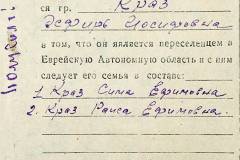 ся гр. Краз
Эсфирь Иосифовна
в том, что он является переселенцем в
Еврейскую Автономную область и с ним
следует его семья в составе:
1 Краз Сима Ефимовна
2. Краз Раиса Ефимовна